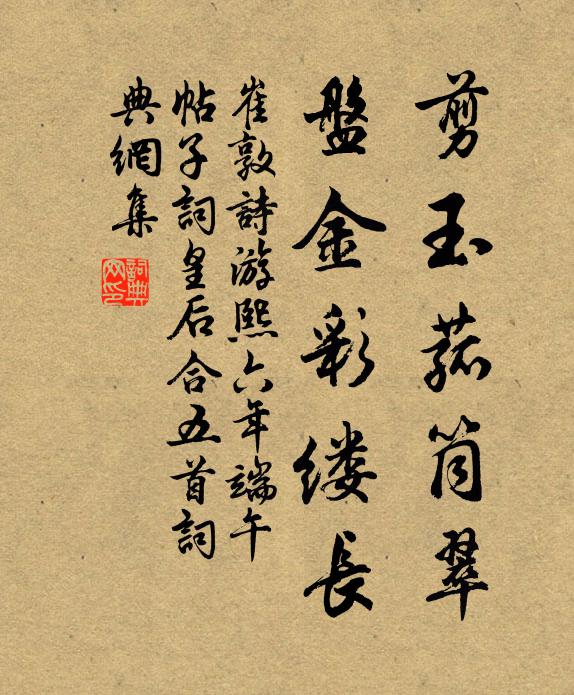 剪玉菰筒翠
盤金彩缕長
崔敦詩游熙六年端午
帖子詞皇后合五首詞
典網集
詞典
网印